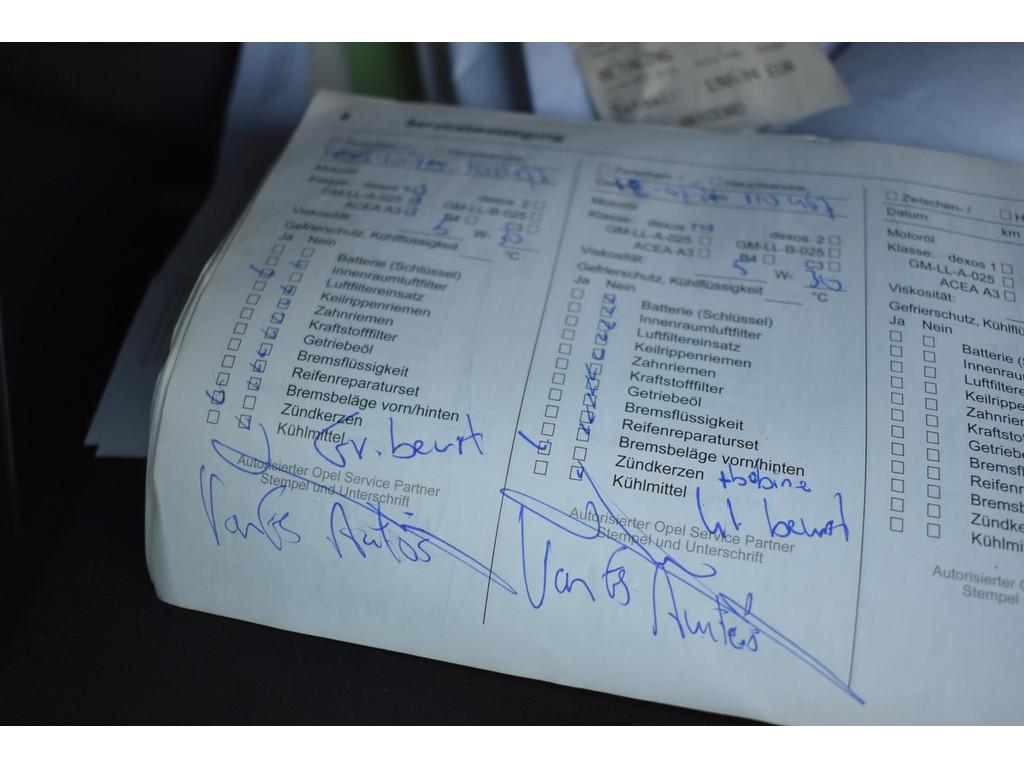 130.01 EUR
8 Servicebestätigung
Zwischen- /
Motoröl
Klasse: dexos 1
dexos 2
GM-LL-A-025
GM-LL-B-025
ACEA A3
B4
C3
Viskosität: 5 W- 30
Gefrierschutz, Kühlflüssigkeit °C
Ja Nein
Batterie (Schlüssel)
Innenraumluftfilter
Luftfiltereinsatz
Keilrippenriemen
Zahnriemen
Kraftstofffilter
Getriebeöl
Bremsflüssigkeit
Reifenreparaturset
Bremsbeläge vorn/hinten
Zündkerzen
Kühlmittel
Gr. beurt
Autorisierter Opel Service Partner
Stempel und Unterschrift
Van Es Autos
Zwischen- / Hauptservice
Motoröl
Klasse: dexos
dexos 2
GM-LL-A-025
GM-LL-B-025
ACEA A3
B4
C3
Viskosität: 5 W- 30
Gefrierschutz, Kühlflüssigkeit °C
Ja Nein
Batterie (Schlüssel)
Innenraumluftfilter
Luftfiltereinsatz
Keilrippenriemen
Zahnriemen
Kraftstofffilter
Getriebeöl
Bremsflüssigkeit
Reifenreparaturset
Bremsbeläge vorn/hinten
Zündkerzen + bobine
Kühlmittel
beurt
Autorisierter Opel Service Partner
Stempel und Unterschrift
Van Es Autos
Zwischen- / H
Datum km
Motoröl
Klasse: dexos 1
GM-LL-A-025
ACEA A3
Viskosität:
Gefrierschutz, Kühlfl
Ja Nein
Batterie (S
Innenraum
Luftfiltere
Keilripper
Zahnrien
Kraftstof
Getriebe
Bremsfl
Reifenr
Bremsb
Zündke
Kühlmi
Autorisierter O
Stempe